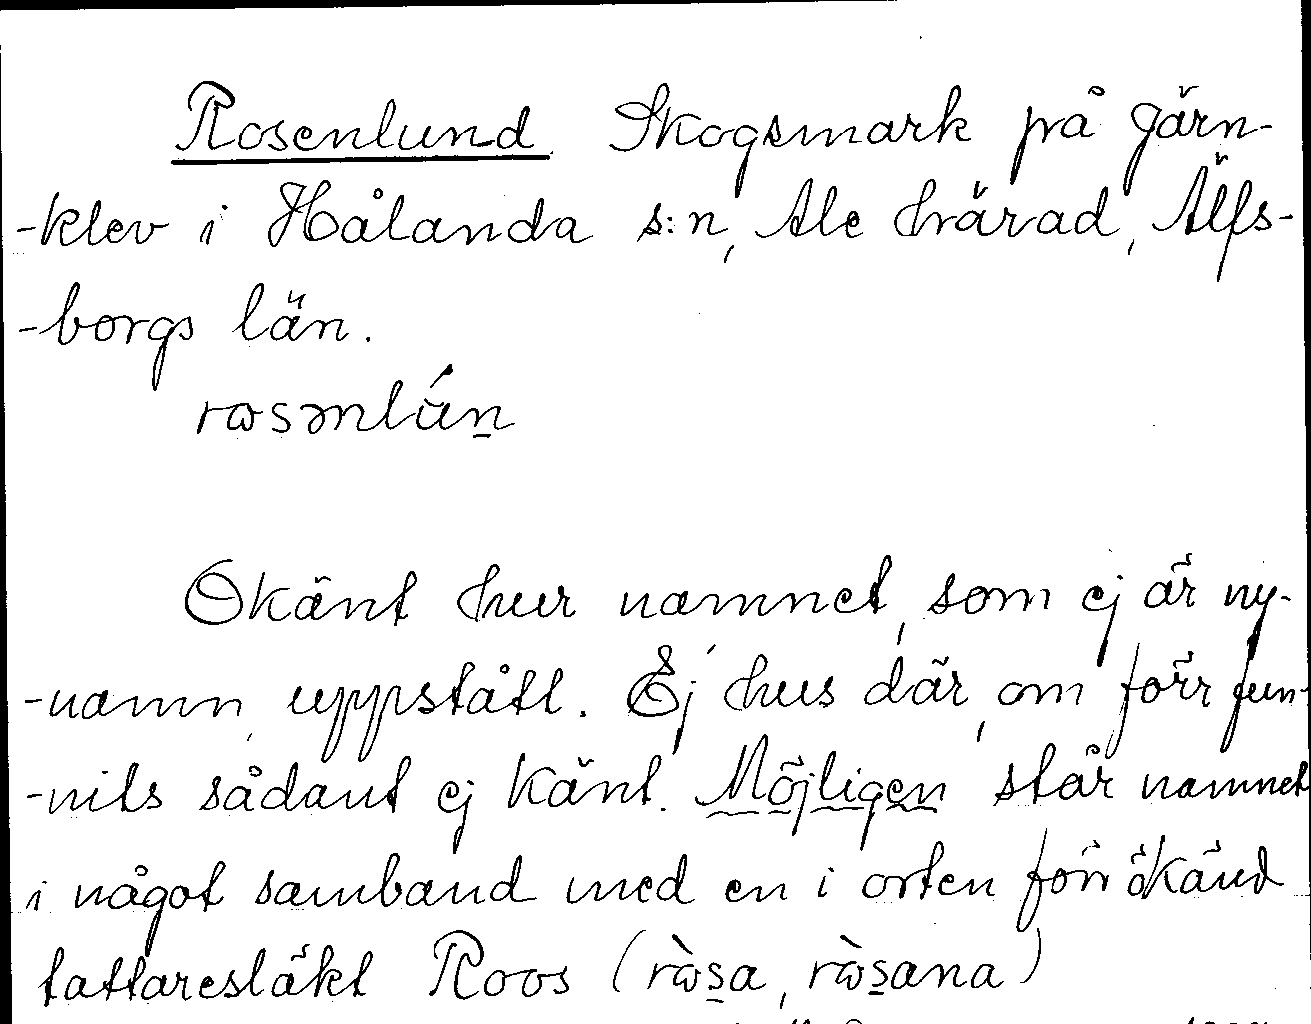 Rosenlund. Skogsmark på Järn-
-klev i Hålanda s:n, Ale härad, Älfs-
-borgs län.
rωsənlún̲
Okänt hur namnet, som ej är ny-
-namn, uppstått. Ej hus där, om förr fun-
-nits sådant ej känt. Möjligen står namnet
i något samband med en i orten förr ökänd
tattaresläkt Roos (rὼs̲a, rὼs̲ana)